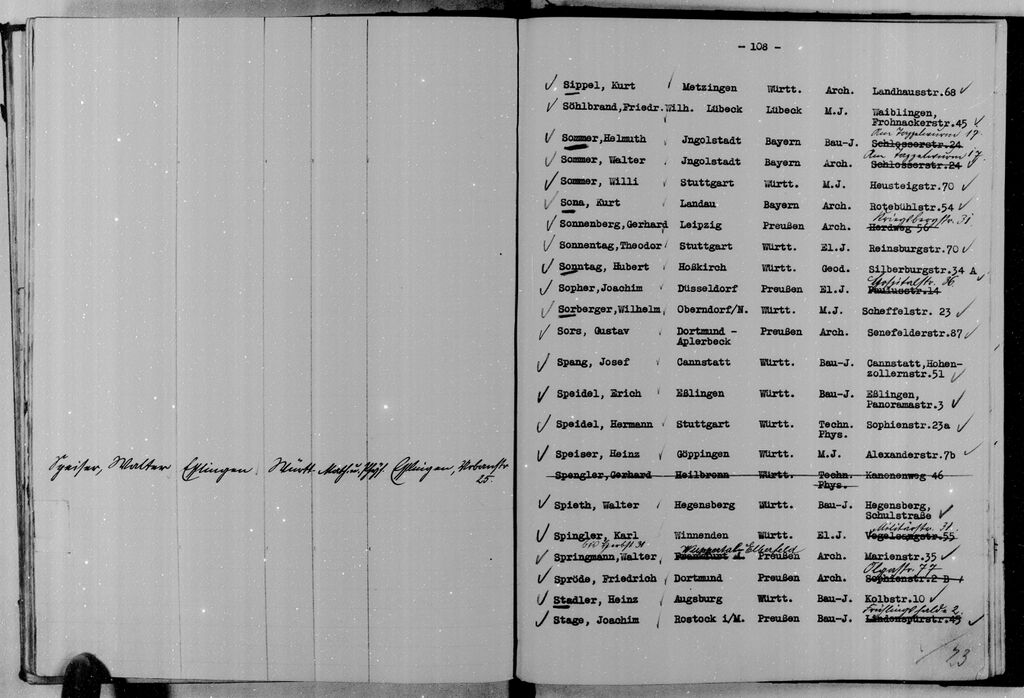 Speiser, Walter Eßlingen Württ. Math.u.Phys. Eßlingen, Urbanstr.
25.
- 108 -
Sippel, Kurt Metzingen Württ. Arch. Landhausstr.68
Söhlbrand,Friedr.Wilh. Lübeck Lübeck M.J. Waiblingen,
Frohnackerstr.45
Am 17.
Sommer,Helmuth Jngolstadt Bayern Bau-J. Schlosserstr.24
Am 17.
Sommer, Walter Jngolstadt Bayern Arch. Schlosserstr.24
Sommer, Willi Stuttgart Württ. M.J. Heusteigstr.70
Sona, Kurt Landau Bayern Arch. Rotebühlstr.54
Kriegsbergstr. 31.
Sonnenberg,Gerhard Leipzig Preußen Arch. Herdweg 56
Sonnentag,Theodor Stuttgart Württ. El.J. Reinsburgstr.70
Sonntag, Hubert Hoßkirch Württ. Geod. Silberburgstr.34 A
Hospitalstr. 36.
Sopher,Joachim Düsseldorf Preußen El.J. Pauiusstr.14
Sorberger,Wilhelm Oberndorf/N. Württ. M.J. Scheffelstr. 23
Sors, Gustav Dortmund - Preußen Arch. Senefelderstr.87
Aplerbeck
Spang, Josef Cannstatt Württ. Bau-J. Cannstatt,Hohen-
zollernstr.51
Speidel, Erich Eßlingen Württ. Bau-J. Eßlingen,
Panoramastr.3
Speidel, Hermann Stuttgart Württ. Techn. Sophienstr.23a
Phys.
Speiser, Heinz Göppingen Württ. M.J. Alexanderstr.7b
Spengler,Gerhard Heilbronn Württ. Techn. Kanonenweg 46
Phys.
Spieth, Walter Hegensberg Württ. Bau-J. Hegensberg,
Schulstraße
Militärstr. 31.
Spingler, Karl Winnenden Württ. El.J. Vogelsangstr.55
Herbst 31 Wuppertal-Elberfeld
Springmann,Walter Frankfurt M. Preußen Arch. Marienstr.35
Olgastr. 77
Spröde, Friedrich Dortmund Preußen Arch. Sophienstr.2 B
Stadler, Heinz Augsburg Württ. Bau-J. Kolbstr.10
Frühlingshalde 2.
Stage, Joachim Rostock i/M. Preußen Bau-J. Lindenspürstr.45
23